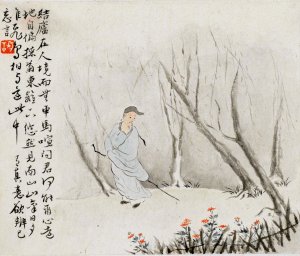 結廬在人境而無車馬喧問君何能爾心遠
地自偏採菊東籬下悠然見南山山氣日夕
佳飛鳥相與還此中有真意欲辨已
忘言